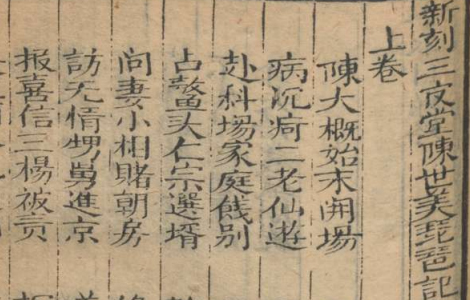 新刻三夜堂陳世美琵琶記
上卷
陳大概始末開場
病沉疴二老仙逝
赴科場家庭餞别
占鳌头仁宗選壻
问妻小相賭朝房
訪无情甥舅進京
报喜信三楊被责